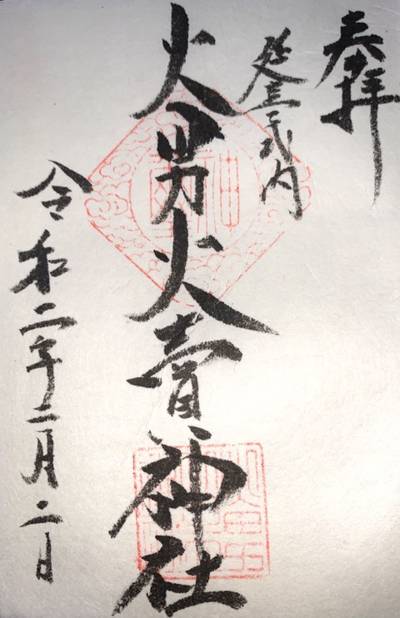 奉拝
延喜式内
火男火賣神社
令和二年二月二日